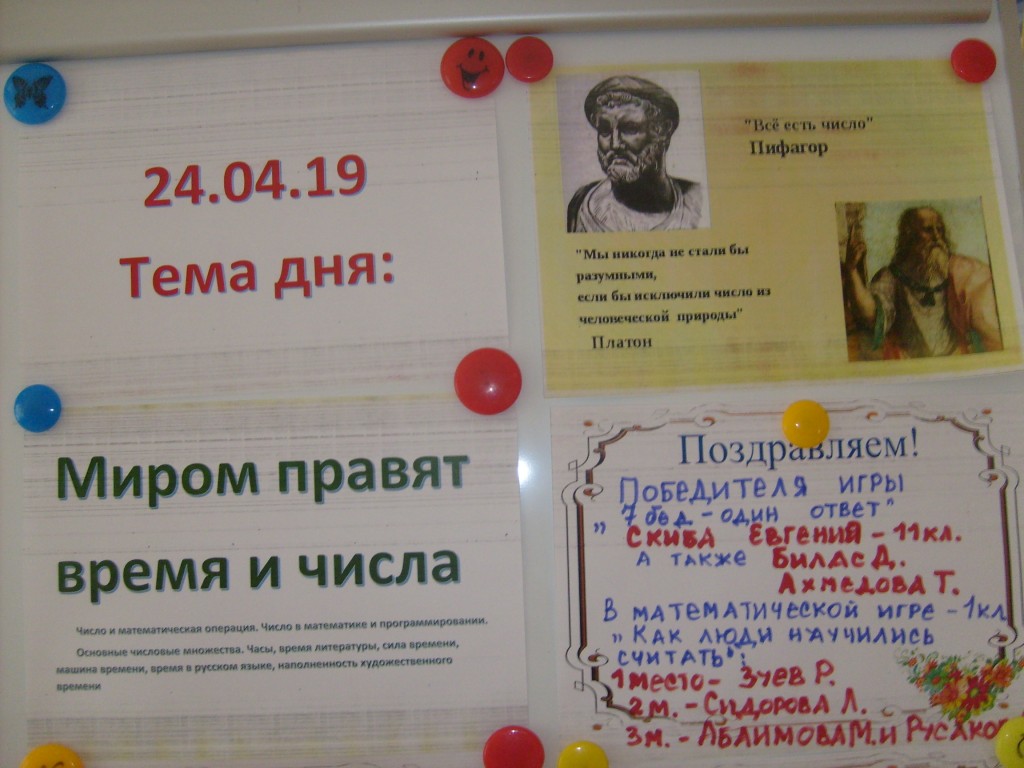 24.04.19
Тема дня:
"Всё есть число"
Пифагор
"Мы никогда не стали бы
разумными,
если бы исключили число из
человеческой природы"
Платон
Миром правят
время и числа
Число и математическая операция. Число в математике и программировании.
Основные числовые множества. Часы, время литературы, сила времени,
машина времени, время в русском языке, наполненность художественного
времени
Поздравляем!
Победителя игры
„7 бед - один ответ"
Скиба Евгения - 11 кл.
А также Билас Д.
Ахмедова Т.
В математической игре - 1 кл
„Как люди научились
считать":
1 место - Зуев Р.
2 м. - Сидорова Л.
3 м. - Аблимова М. и